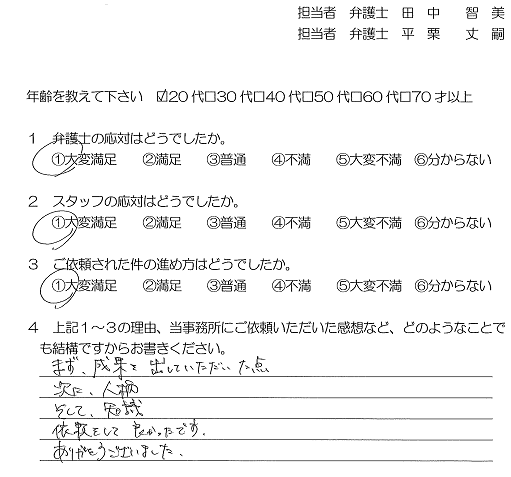 担当者 弁護士 田中 智美
担当者 弁護士 平栗 丈嗣
年齢を教えて下さい ☑20代□30代□40代□50代□60代□70才以上
1 弁護士の応対はどうでしたか。
①大変満足 ②満足 ③普通 ④不満 ⑤大変不満 ⑥分からない
2 スタッフの応対はどうでしたか。
①大変満足 ②満足 ③普通 ④不満 ⑤大変不満 ⑥分からない
3 ご依頼された件の進め方はどうでしたか。
①大変満足 ②満足 ③普通 ④不満 ⑤大変不満 ⑥分からない
4 上記1～3の理由、当事務所にご依頼いただいた感想など、どのようなことで
も結構ですからお書きください。
まず、成果を出していただいた点
次に、人柄
そして、知識
依頼をして良かったです。
ありがとうございました。